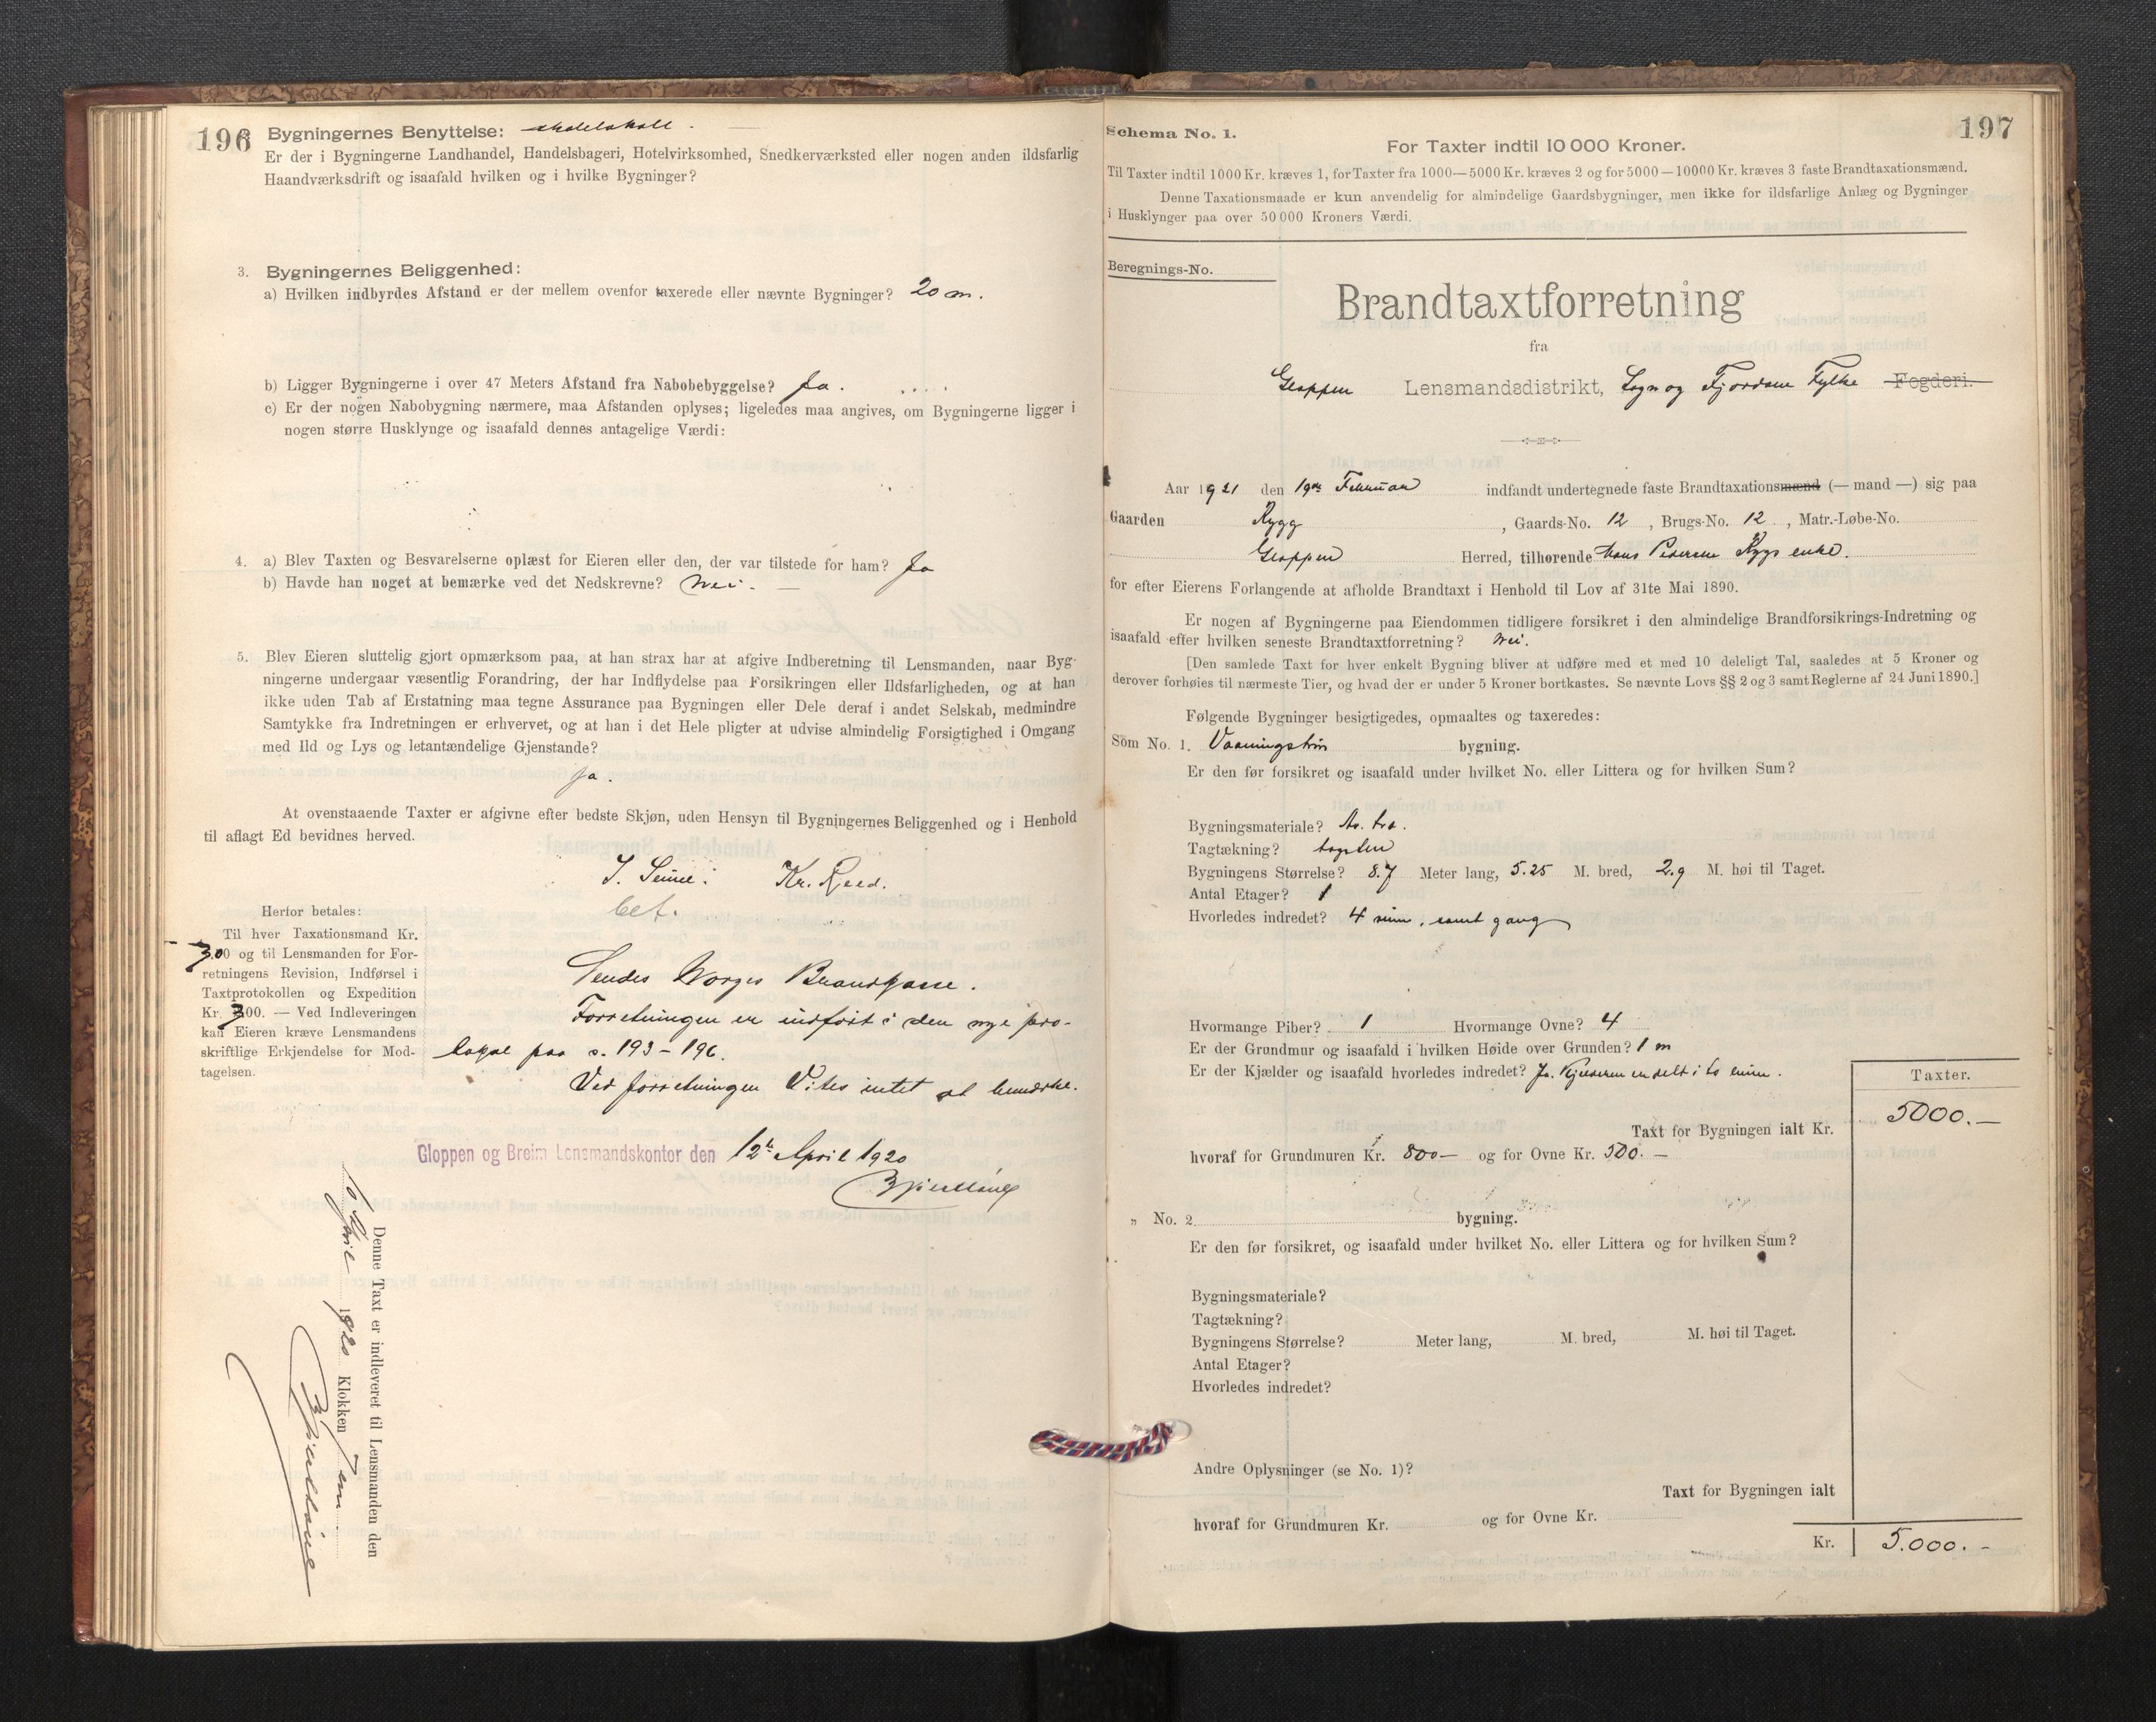 196
2. Bygningernes Benyttelse: skolelokale. —
Er der i Bygningerne Landhandel, Handelsbageri, Hotelvirksomhed, Snedkerværksted eller nogen anden ildsfarlig
Haandværksdrift og isaafald hvilken og i hvilke Bygninger?
3. Bygningernes Beliggenhed:
a) Hvilken indbyrdes Afstand er der mellem ovenfor taxerede eller nævnte Bygninger? 20 m.
b) Ligger Bygningerne i over 47 Meters Afstand fra Nabobebyggelse? Ja.
c) Er der nogen Nabobygning nærmere, maa Afstanden oplyses; ligeledes maa angives, om Bygningerne ligger i
nogen større Husklynge og isaafald dennes antagelige Værdi:
4. a) Blev Taxten og Besvarelserne oplæst for Eieren eller den, der var tilstede for ham? Ja
b) Havde han noget at bemærke ved det Nedskrevne? Nei. —
5. Blev Eieren sluttelig gjort opmærksom paa, at han strax har at afgive Indberetning til Lensmanden, naar Byg-
ningerne undergaar væsentlig Forandring, der har Indflydelse paa Forsikringen eller Ildsfarligheden, og at han
ikke uden Tab af Erstatning maa tegne Assurance paa Bygningen eller Dele deraf i andet Selskab, medmindre
Samtykke fra Indretningen er erhvervet, og at han i det Hele pligter at udvise almindelig Forsigtighed i Omgang
med Ild og Lys og letantændelige Gjenstande?
Ja.
At ovenstaaende Taxter er afgivne efter bedste Skjøn, uden Hensyn til Bygningernes Beliggenhed og i Henhold
til aflagt Ed bevidnes herved.
Kr. Reed.
bet.
Herfor betales:
Til hver Taxationsmand Kr.
3.00 og til Lensmanden for For-
retningens Revision, Indførsel i
Taxtprotokollen og Expedition
Kr. 3.00. — Ved Indleveringen
kan Eieren kræve Lensmandens
skriftlige Erkjendelse for Mod-
tagelsen.
Sendes Norges Brandkasse.
Forretningen er indført i den nye pro-
tokol paa s. 193 – 196.
Ved forretningen vites intet at bemerke.
Gloppen og Breim Lensmandskontor den 12te April 1920
Denne Taxt er indleveret til Lensmanden den
10 April 1920 Klokken 7 em.
197
Schema No. 1.
For Taxter indtil 10 000 Kroner.
Til Taxter indtil 1000 Kr. kræves 1, for Taxter fra 1000—5000 Kr. kræves 2 og for 5000—10000 Kr. kræves 3 faste Brandtaxationsmænd.
Denne Taxationsmaade er kun anvendelig for almindelige Gaardsbygninger, men ikke for ildsfarlige Anlæg og Bygninger
i Husklynger paa over 50 000 Kroners Værdi.
Beregnings-No.
Brandtaxtforretning
fra
Gloppen Lensmandsdistrikt, Sogn og Fjordane Fylke Fogderi.
Aar 1921 den 19de Februar indfandt undertegnede faste Brandtaxationsmænd (— mand —) sig paa
Gaarden Rygg, Gaards-No. 12, Brugs-No. 12, Matr.-Løbe-No.
Gloppen Herred, tilhørende Hans Pedersen Rygs enke.
for efter Eierens Forlangende at afholde Brandtaxt i Henhold til Lov af 31te Mai 1890.
Er nogen af Bygningerne paa Eiendommen tidligere forsikret i den almindelige Brandforsikrings-Indretning og
isaafald efter hvilken seneste Brandtaxtforretning? Nei.
[Den samlede Taxt for hver enkelt Bygning bliver at udføre med et med 10 deleligt Tal, saaledes at 5 Kroner og
derover forhøies til nærmeste Tier, og hvad der er under 5 Kroner bortkastes. Se nævnte Lovs §§ 2 og 3 samt Reglerne af 24 Juni 1890.]
Følgende Bygninger besigtigedes, opmaaltes og taxeredes:
Som No. 1. Vaaningshus bygning.
Er den før forsikret og isaafald under hvilket No. eller Littera og for hvilken Sum?
Bygningsmateriale? Av. træ.
Tagtækning? tagsten
Bygningens Størrelse? 8.7 Meter lang, 5.25 M. bred, 2.9 M. høi til Taget.
Antal Etager? 1
Hvorledes indredet? 4 rum, samt gang
Hvormange Piber? 1 Hvormange Ovne? 4
Er der Grundmur og isaafald i hvilken Høide over Grunden? 1 m
Er der Kjælder og isaafald hvorledes indredet? Ja. Kjelderen er delt i to rum.
Taxter.
Taxt for Bygningen ialt Kr. 5000.—
hvoraf for Grundmuren Kr. 800— og for Ovne Kr. 500.—
„ No. 2 bygning.
Er den før forsikret, og isaafald under hvilket No. eller Littera og for hvilken Sum?
Bygningsmateriale?
Tagtækning?
Bygningens Størrelse? Meter lang, M. bred, M. høi til Taget.
Antal Etager?
Hvorledes indredet?
Andre Oplysninger (se No. 1)?
Taxt for Bygningen ialt
hvoraf for Grundmuren Kr. og for Ovne Kr.
Kr. 5.000.—